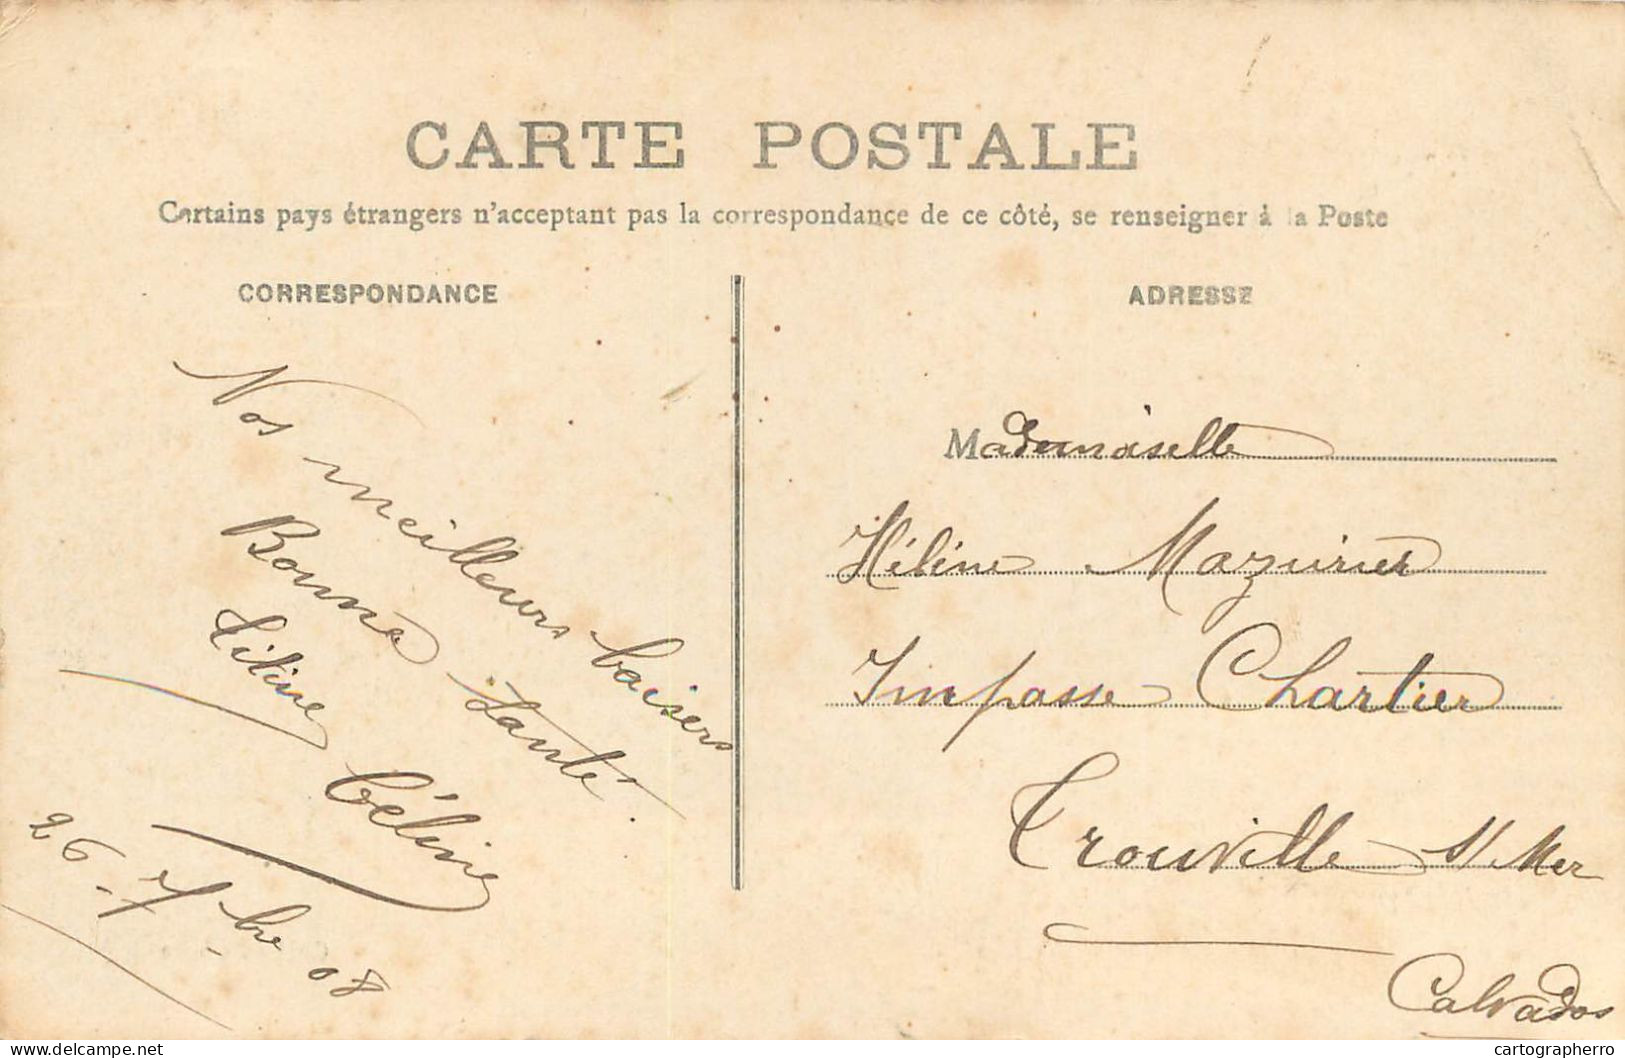 CARTE POSTALE
Certains pays étrangers n'acceptant pas la correspondance de ce côté, se renseigner à la Poste
CORRESPONDANCE
Nos meilleurs baisers
Bonne Santé.
Céline
26 - 7bre - 08
ADRESSE
Mademoiselle
Hélène Mazurier
Impasse Chartier
Trouville s/ Mer
Calvados
delcampe.net
cartographerro